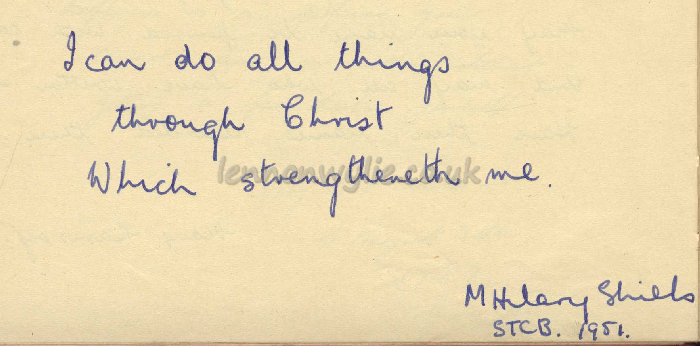 I can do all things
through Christ
Which strengtheneth me.
lennonwylie.co.uk
M Hilary Shields
STCB. 1951.